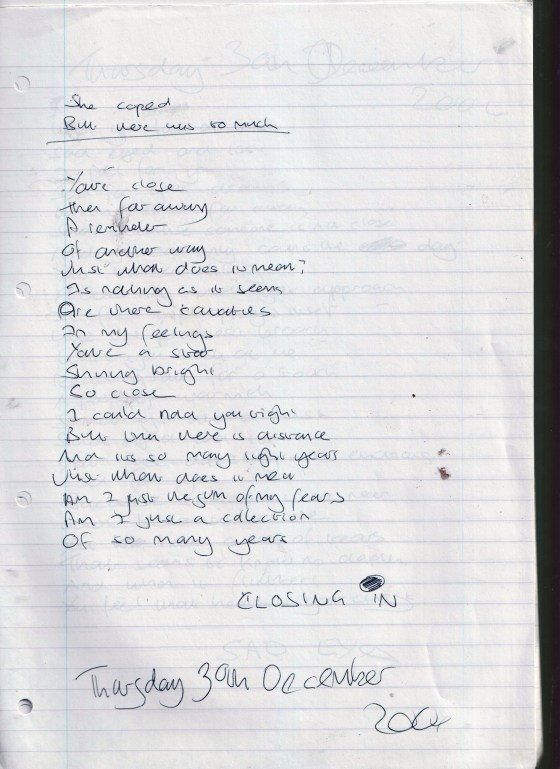 She coped
But there was so much
You're close
then far away
A reminder
Of another way
Just what does it mean?
Is nothing as it seems
Are there
In my feelings
You're a star
Shining bright
So close
I could hold you tight
But then there is distance
And its so many light years
Just what does it mean
Am I just the sum of my fears
Am I just a collection
Of so many years
CLOSING IN
Thursday 30th December
2004